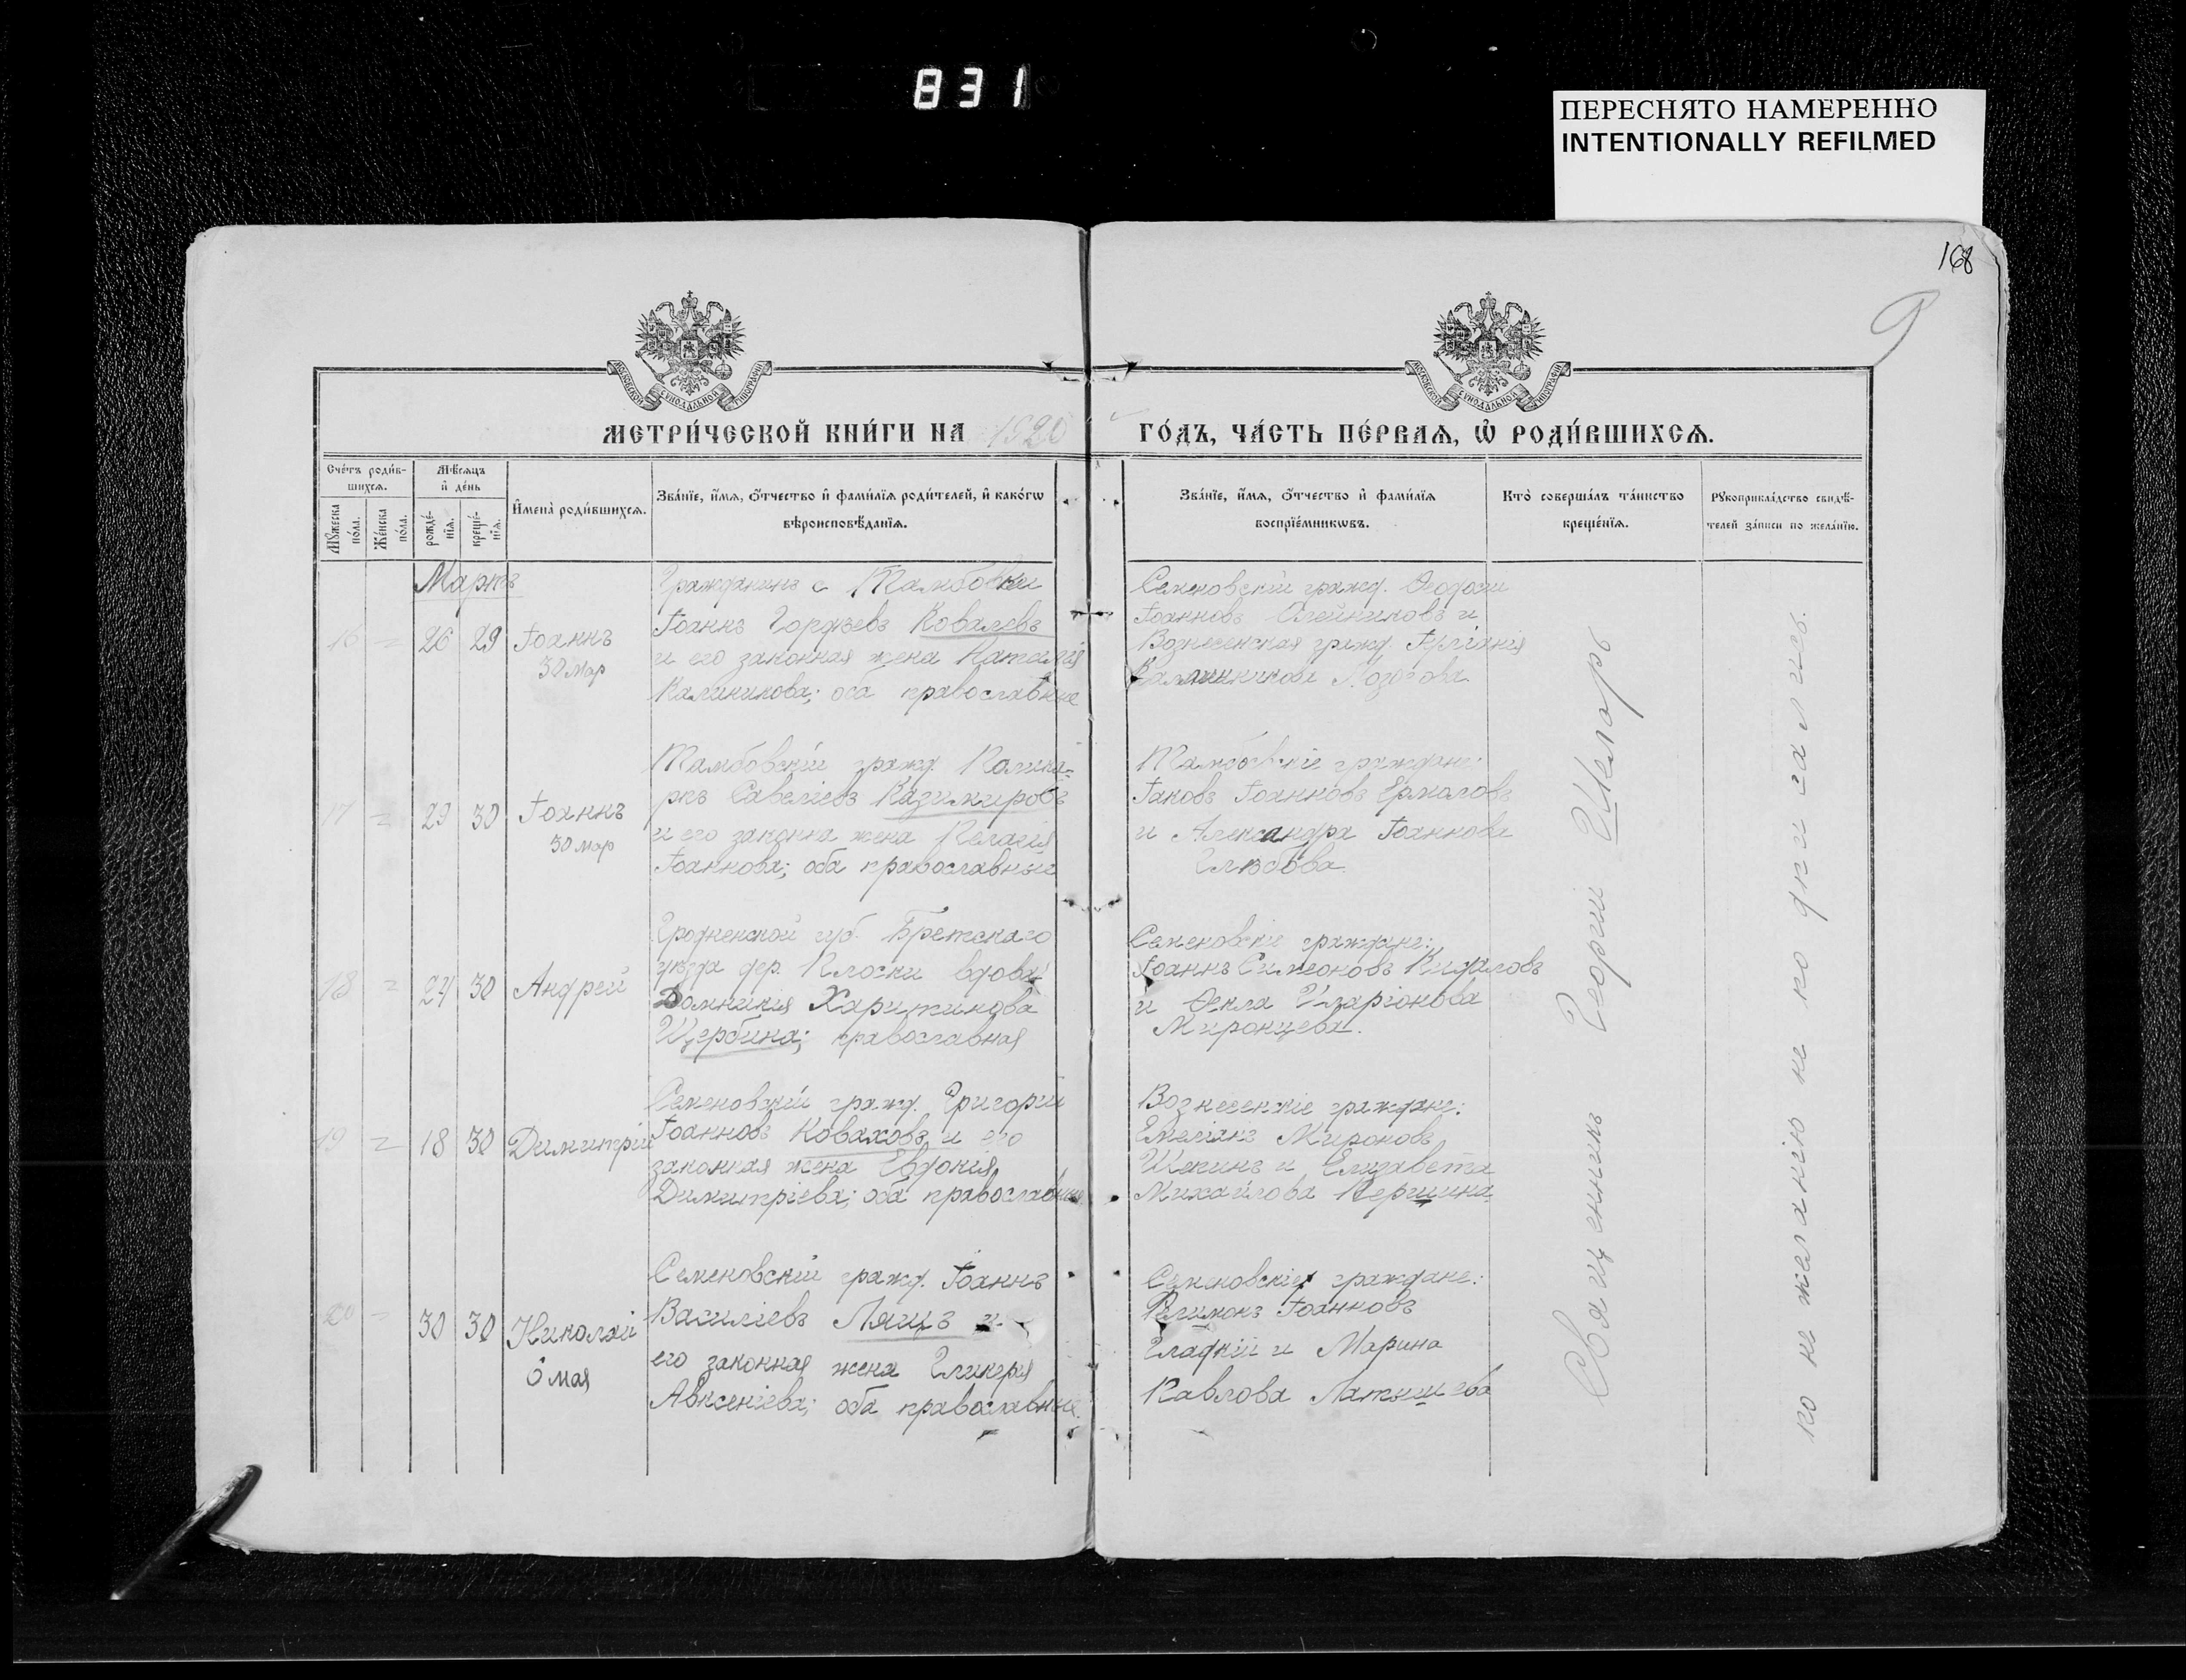 831
ПЕРЕСНЯТО НАМЕРЕННО
INTENTIONALLY REFILMED
168
9
МОСКОВСКОЙ СѴНОДАЛЬНОЙ ТИПОГРАФІИ
МОСКОВСКОЙ СѴНОДАЛЬНОЙ ТИПОГРАФІИ
МЕТРИ́ЧЕСКОЙ КНИ́ГИ НА 1920 ГО́ДЪ, ЧА́СТЬ ПЕ́РВАѦ, Ѡ҆ РОДИ́ВШИХСѦ.
Сче́тъ роди́в-
шихсѧ.
Мꙋ́жеска по́ла.
Же́нска по́ла.
Мѣ́сѧцъ
и҆ де́нь
рожде́-
нїѧ.
креще́-
нїѧ.
И҆мена̀ роди́вшихсѧ.
Зва́нїе, и҆́мѧ, ѻ҆́тчество и҆ фами́лїѧ роди́телей, и҆ како́гѡ
вѣроисповѣ́данїѧ.
Зва́нїе, и҆́мѧ, ѻ҆́тчество и҆ фами́лїѧ
воспрїе́мникѡвъ.
Кто̀ соверша́лъ та́инство
креще́нїѧ.
Рꙋкоприкла́дство свидѣ́-
телей за́писи по жела́нїю.
Мартъ
16 = 26 29 Іоаннъ
30 мар
Гражданинъ с Тамбовки
Іоаннъ Гордѣевъ Ковалевъ
и его законная жена Наталія
Калиникова; оба православные
Семеновскій гражд. Ѳеодосій
Іоанновъ Олейниковъ и
Вознесенская гражд.
Калинникова
17 = 29 30 Іоаннъ
30 мар
Тамбовскій гражд. Поликар-
пъ Савеліевъ Казимировъ
и его законна жена Пелагія
Іоаннова; оба православные
Тамбовскіе граждане:
Іаковъ Іоанновъ Ермоловъ
и Александра Іоаннова
Глѣбова.
18 = 24 30 Андрей
Гродненской губ. Бретскаго
уѣзда дер. Плоски вдова
Домникія Харитинова
Щербина; православная
Семеновскіе граждане:
Іоаннъ Симеоновъ Кидаловъ
и Ѳекла Иларіонова
Миронцева.
19 = 18 30 Димитрій
Семеновскій гражд. Григорій
Іоанновъ Коваховъ и его
законная жена Евдокія
Димитріева; оба православные
Вознесенскіе граждане:
Емеліанъ Мироновъ
Шекинъ и Елизавета
Михаилова Першина.
20 = 30 30 Николай
6 мая
Семеновскій гражд. Іоаннъ
Василіевъ Ляицъ и
его законная жена Гликерія
Авксеніева; оба православные.
Семеновскіе граждане:
Филимонъ Іоанновъ
Гладкій и Марина
Павлова Латышева
Священникъ Георгій
по нежеланію не подписались.